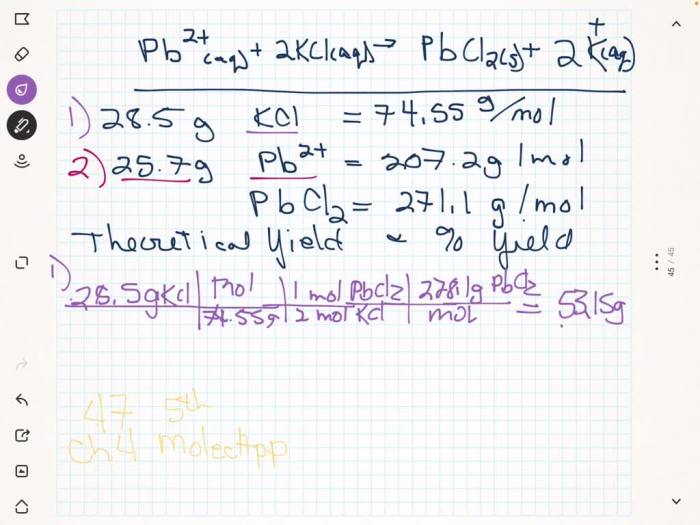 Pb²⁺(aq) + 2KCl(aq) → PbCl₂(s) + 2K⁺(aq)
1) 28.5 g KCl = 74.55 g/mol
2) 25.7g Pb²⁺ = 207.2g/mol
PbCl₂ = 271.1 g/mol
Theoretical Yield & % Yield
1)
28.5gKCl | mol | 1 mol PbCl₂ | 278.1g PbCl₂ = 53.15g
74.55g | 2 mol KCl | mol
47 5th
Ch4 molecApp
45 / 45